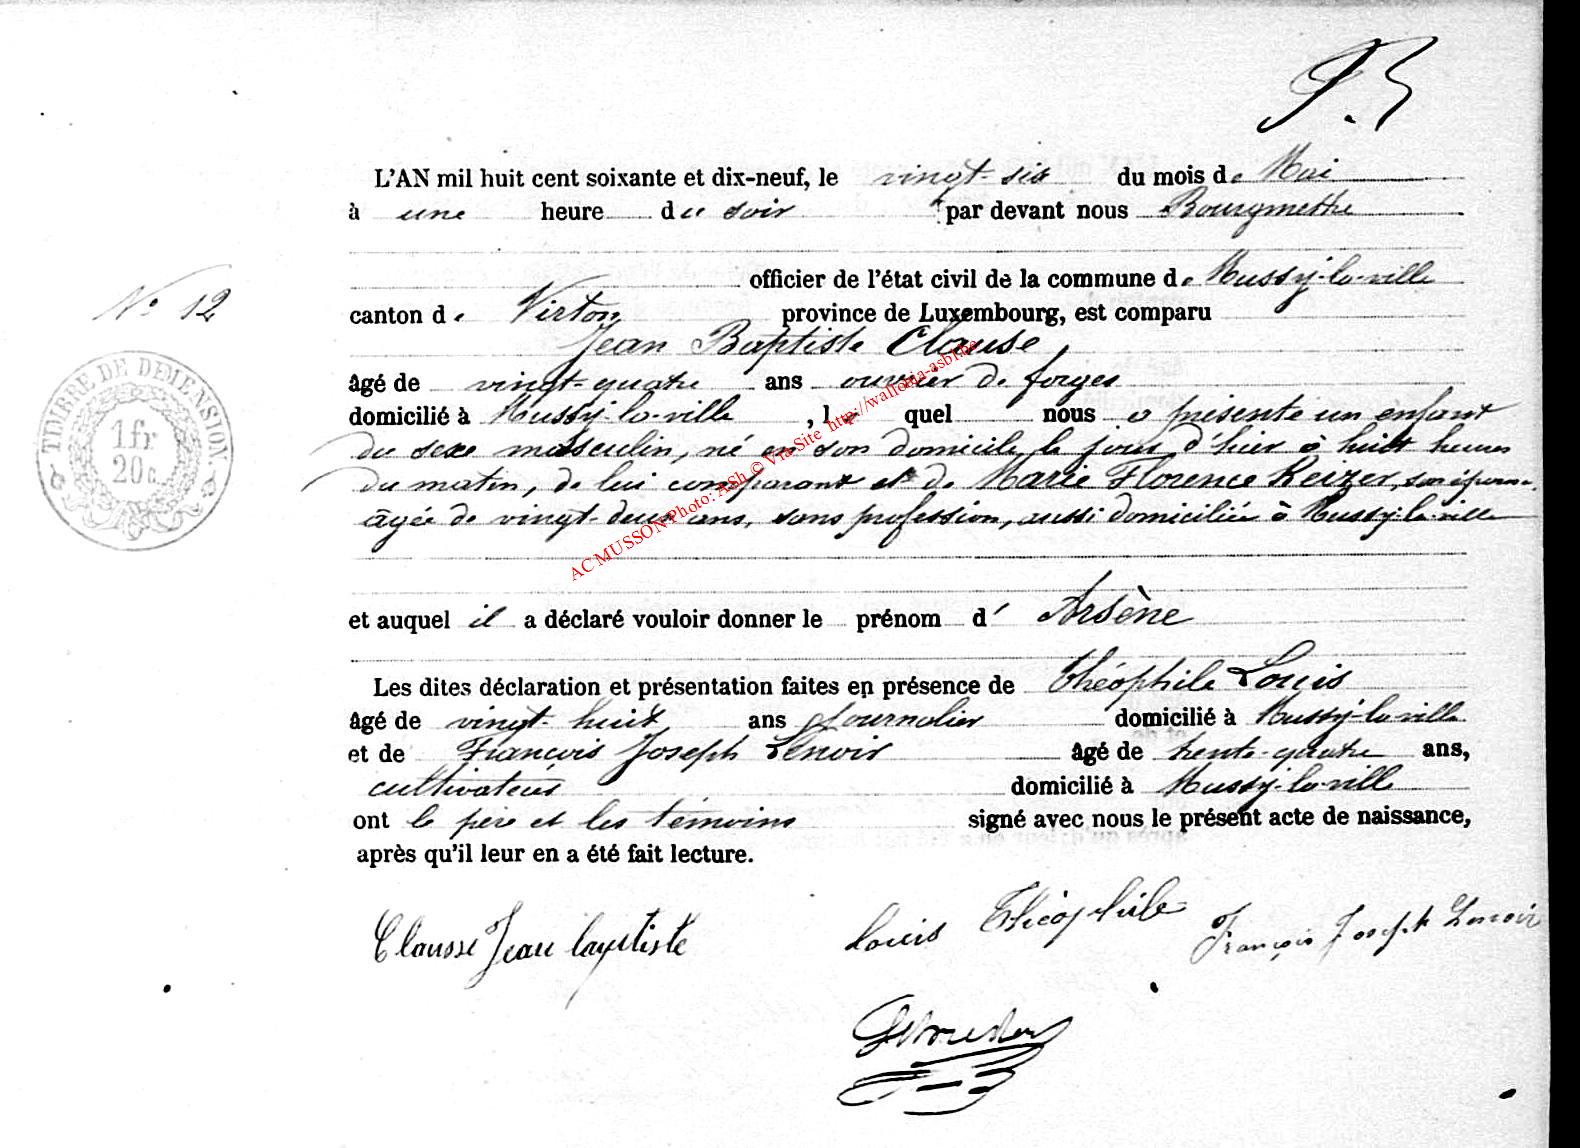 L'AN mil huit cent soixante et dix-neuf, le vingt-six du mois de Mai
à une heure du soir par devant nous Bourgmestre
officier de l'état civil de la commune de Mussy-la-ville
N° 12
canton de Virton province de Luxembourg, est comparu
Jean Baptiste Clause,
âgé de vingt-quatre ans ouvrier de forges
domicilié à Mussy-la-ville, le quel nous a présenté un enfant
du sexe masculin, né en son domicile, le jour d'hier à huit heures
du matin, de lui comparant et de Marie Florence Reizer, son épouse,
âgée de vingt-deux ans, sans profession, aussi domiciliée à Mussy-la-ville
TIMBRE DE DIMENSION.
1 fr
20 c.
ACMUSSON Photo: ASh © Via Site http://wallonia-asbl.be
et auquel il a déclaré vouloir donner le prénom d' Arsène
Les dites déclaration et présentation faites en présence de Théophile Louis
âgé de vingt-huit ans Journalier domicilié à Mussy-la-ville
et de François Joseph Lenoir âgé de trente-quatre ans,
cultivateur domicilié à Mussy-la-ville
ont le père et les témoins signé avec nous le présent acte de naissance,
après qu'il leur en a été fait lecture.
Clausse Jean baptiste Louis Théophile François Joseph Lenoir